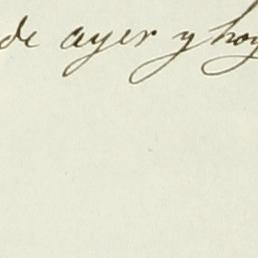 de ayer y hoy